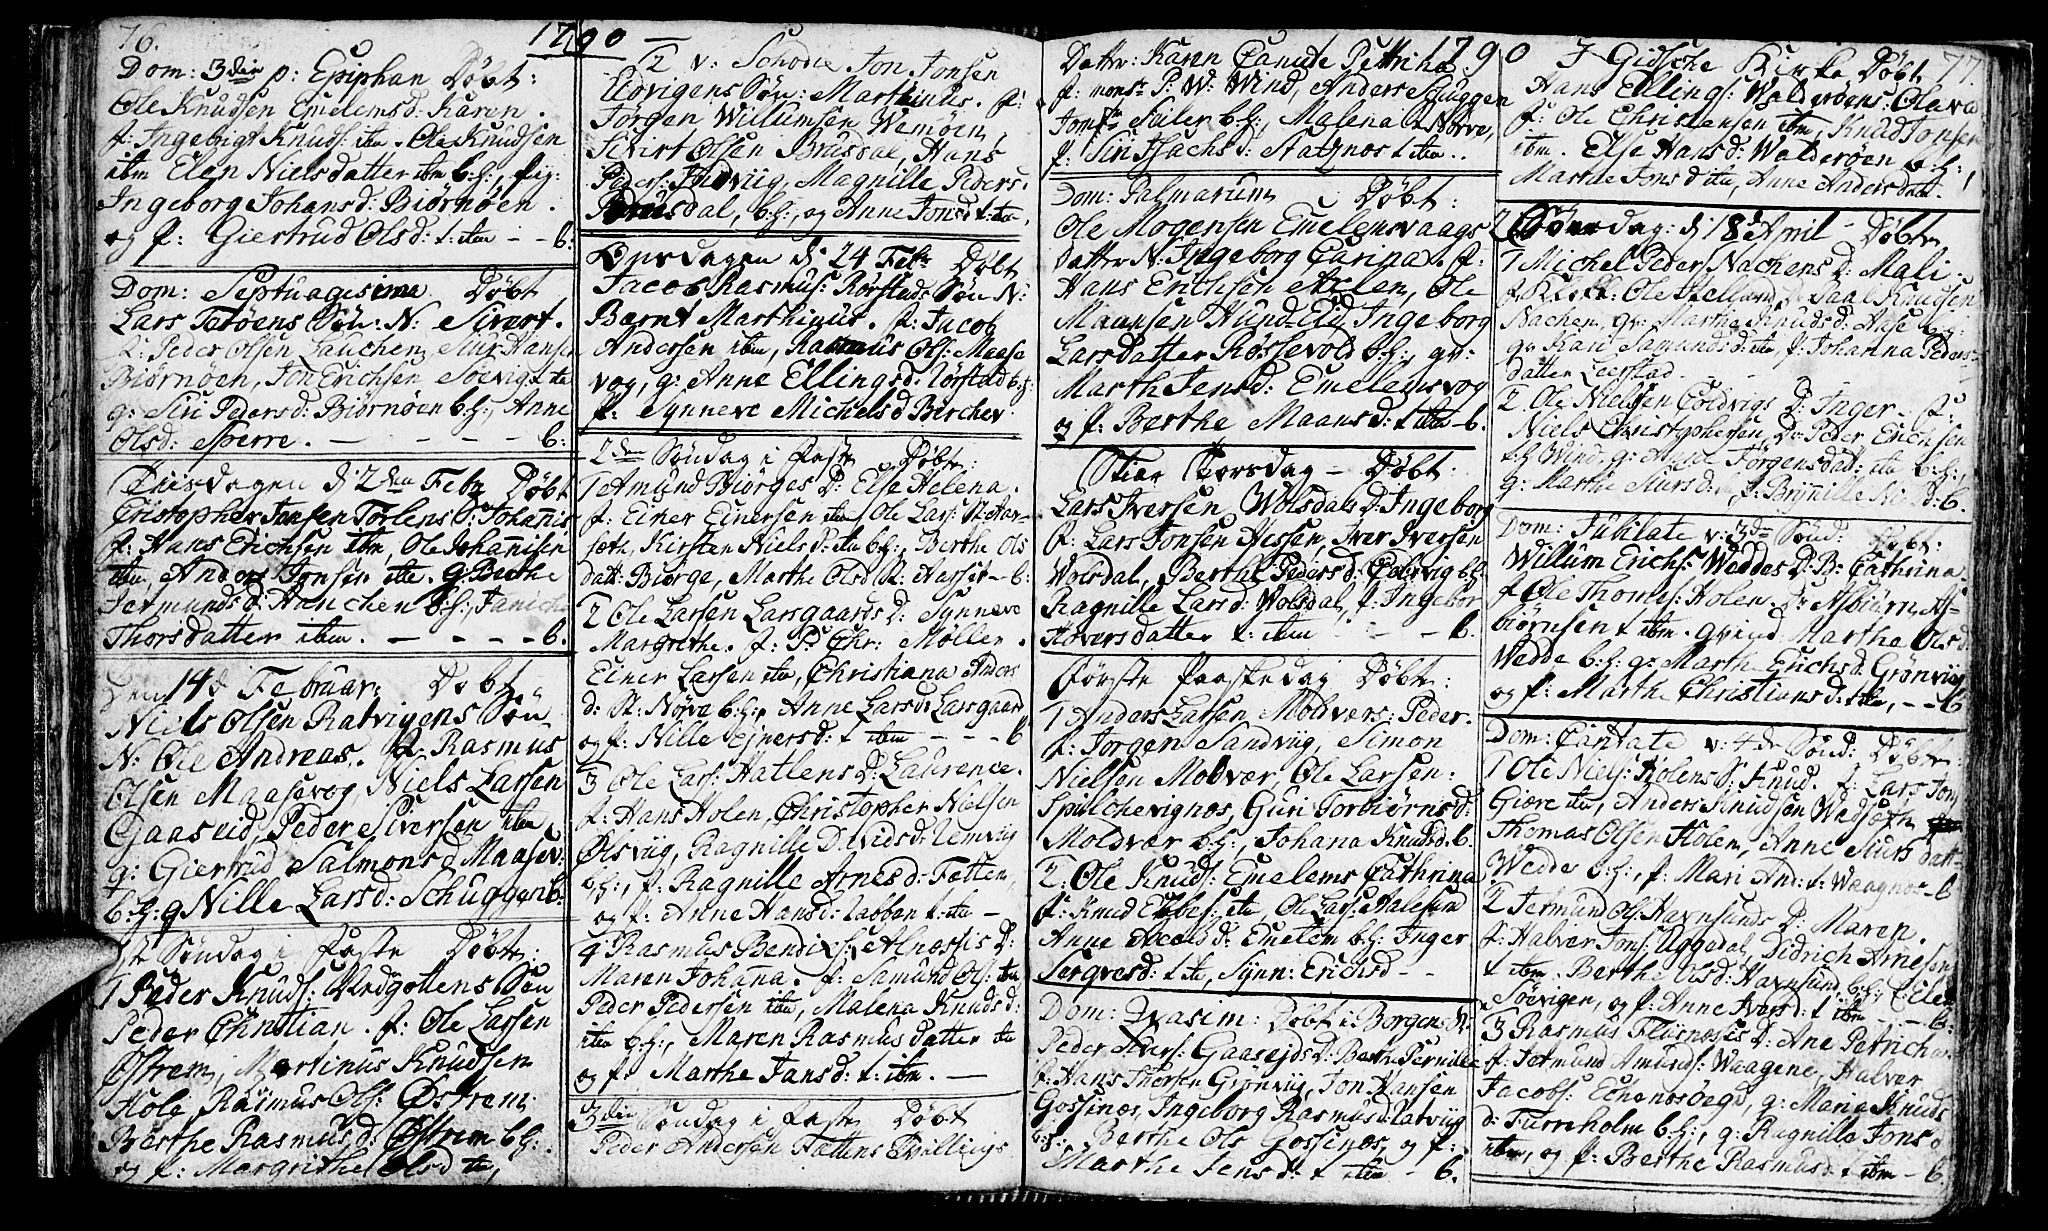 76.
1790 —
Dom: 3die p: Epiphan Døbt:
Ole Knudsen Emelems d: Karen.
f: Ingebrigt Knuds: itm. Ole Knudsen
ibm Elen Nielsdatter ibm b:h:, pig:
Ingeborg Johans d: Biørnøen.
og f: Giertrud Ols d: t: itm — b:
Dom: Septuagesima Døbt
Lars Terøens Søn: N: Sivert.
f: Peder Olsen Hansen
Biørnøen, Jon Erichsen Søevig t: itm
g: Siri Peders d: Biørnøen b:h:, Anne
Ols d: Sperre. — — — b:
Tiisdagen d: 2den Febr Døbt
Cristopher Jonsen Torlens S: Johannis
f: Hans Erichsen ibm, Ole Johannisen
ibm, Anders Jonsen itm. g: Berthe
Jetmunds d: b:h:, Janiche
Thorsdatter ibm. — — — b.
Den 14 d Februar: Døbt
Niels Olsen Ratvigens Søn
N: Ole Andreas. f: Rasmus
Olsen Maasevog, Niels Larsen
Gaaseid, Peder Siversen itm,
g: Giertrud Salmons d Maasev:
b:h: g Nille Lars d: Schuggen b:
1st Søndag i faste Døbt:
1 Peder Knuds: Vedgottens Søn
Peder Christian. f: Ole Larsen
Østrem, Martinus Knudsen
Hole, Rasmus Ols: Østrem:
Berthe Rasmus d: Østrem b:h:
og f: Margrithe Ols d itm,
2 v: Schodie Jon Jonsen
Edvigens Søn: Marthinus. f:
Jørgen Willumsen Wemøen,
Sivert Olsen Brusdal, Hans
Peders: Indviig, Magnille Peders.
Brusdal, b:h:, og Anne Jons d: t: itm,
Onsdagen d: 24 Febr Døbt
Jacob Rasmus: Rørstads Søn N:
Bærnt Marthinus. f: Jacob
Andersen ibm, Rasmus Ols: Maase
vog, g: Anne Ellings d: Rørstad b:h:
f: Synneve Michels d Berchev
2den Søndag i faste Døbt:
1 Amund Biørges D: Else Helena.
f: Einer Einersen itm, Ole Lars: St: Aar-
sæth, Kirsten Niels d: itm b:h:, Berthe Ols
datt: Biørge, Marthe Ols d St: Aarset — b:
2 Ole Larsen Larsgaards D: Synneve
Margrethe. f: P: Chr: Møller.
Einer Larsen itm, Christiana Anders
d: St: Nørve b:h:, Anne Lars d: Larsgaard
og f: Nille Ejners d: t ibm — — — b
3 Ole Lars: Hatlens D: Laurence.
f: Hans Holen, Christopher Nielsen
Ølsviig, Ragnille Davids d:
b:h:, f: Ragnille Arnes d: Fætten,
og f: Anne Hans d: Rabben t: itm —
4 Rasmus Bendixs: Alnæssis D:
Maren Johanna. f: Samund Ols: itm
Peder Pedersen itm, Malena Knuds d:
itm b:h:, Maren Rasmus datter itm
og f: Marthe Jans d: t: ibm. —
3die Søndag i faste Døbt
Peder Andersen Fættens Tvillings
1790
Datter: Karen Canute Pettrica
f: mons: P: W: Wind, Anders Schuggen
Jomfr Sailer b:h:, Malena Nørve,
f: Siri Isachs d: Statznos t itm..
Dom: Palmarum Døbt:
Ole Mogensen Emelemsvaags
datter N: Ingeborg Carina. f:
Hans Erichsen Aslen, Ole
Maansen Hund-Eid, Ingeborg
Larsdatter Røssevold b:h:, gv:
Marthe Jens d: Emelemsvog
og f: Berthe Maans d: t itm — b.
Skier Torsdag — Døbt:
Lars Iversen Wolsdals D: Ingeborg
f: Lars Jonsen Hessen, Iver Iversen
Volsdal, Berthe Peders d: Colvig b:h:
Ragnille Lars d: Volsdal, f: Ingebor
Siversdatter t: itm — — b.
Første Paaskedag Døbt:
1 Anders Larsen Moldværs: Peder.
f: Jørgen Sandviig, Simon
Nielsen Molvær, Ole Larsen:
Spulchevignos, Guri Torbiørns d:
Moldvær b:h:, Johana Knuds d b.
2: Ole Knuds: Emelems Cathrina
f: Knud Ebbes: itm, Ole Lars: Aalesund
Anne Jacobs d: Emelem b:h: Inger
Sergves d: t itm, Synn: Erichs d — —
Dom: Qvasim: Døbt i Borgens K:
Peder Sivers: Gaasejds D: Berthe Pernille
f: Hans Thorsen Grønviig, Jon Hansen
Gossenæs, Ingeborg Rasmus d: Ratviig
b:h:. Berthe Ols Gossenæs, og f:
Marthe Jens d: t itm — b.
77.
I Gidsche Kirke Døbt
Hans Ellings: Walderøens: Olava
f: Ole Christensen ibm, Knud Jonsen
ibm. Else Hans d: Walderøen b:h:,
Marthe Jons d itm, Anne Andersdatt.
2 Søndag: d: 18de April — Døbt
1 Michel Peder Nachens D: Mali
f: Klokk: Ole Stelland, Paal Knudsen
Nachen, gv: Marthe Knuds d: Aase b:h:
g: Kari Samunds d: itm, f: Johanna Peders-
datter Leerstad. — — — —
2 Ole Nielsen Coldvigs D: Inger — f:
Niels Christophersen, D: Peder Erichsen
Wind, g: Anne Jørgensdatt: itm b:h:,
g: Marthe Siurs d: itm, f: Brynnille Niels d: b.
Dom: Jubilate v: 3de Sønd: Døbt:
Willum Erichs: Weddes D: B: Cathrina
f Ole Thomes: Holen, D: Asbiørn As-
biørnsen t ibm. qvind Marthe Ols d
Wedde b:h: g: Marthe Erichs d: Grønviig
og f: Marthe Christians d: itm, — b
Dom: Cantate v: 4de Sønd: Døbt:
1 Ole Niels: Holens S: Knud. f: Lars Jons
Giære itm, Anders Knudsen Wedsæth
Thomas Olsen Holen, Anne Siurs datt-
Wedde b:h:, f: Mari And: t: Waagnos — b
2 Jetmund Ols: Havnsunds D: Maren.
f: Halver Jons: Uggedal, Didrich Arnesen
t ibm. Berthe Ols d: Havnsund, b:h: Eilen
Søevigen, og f: Anne Ivers d: t ibm — — b:
3 Rasmus Flisnosis D: Ane Petricha
f: Jetmund Amunds: Waagene, Halver
Jacobs: Echenosvegs, g: Maria Knuds
d: Furreholm b:h:, g: Ragnille Jons d
ibm, og f: Berthe Rasmus d: t ibm — b.